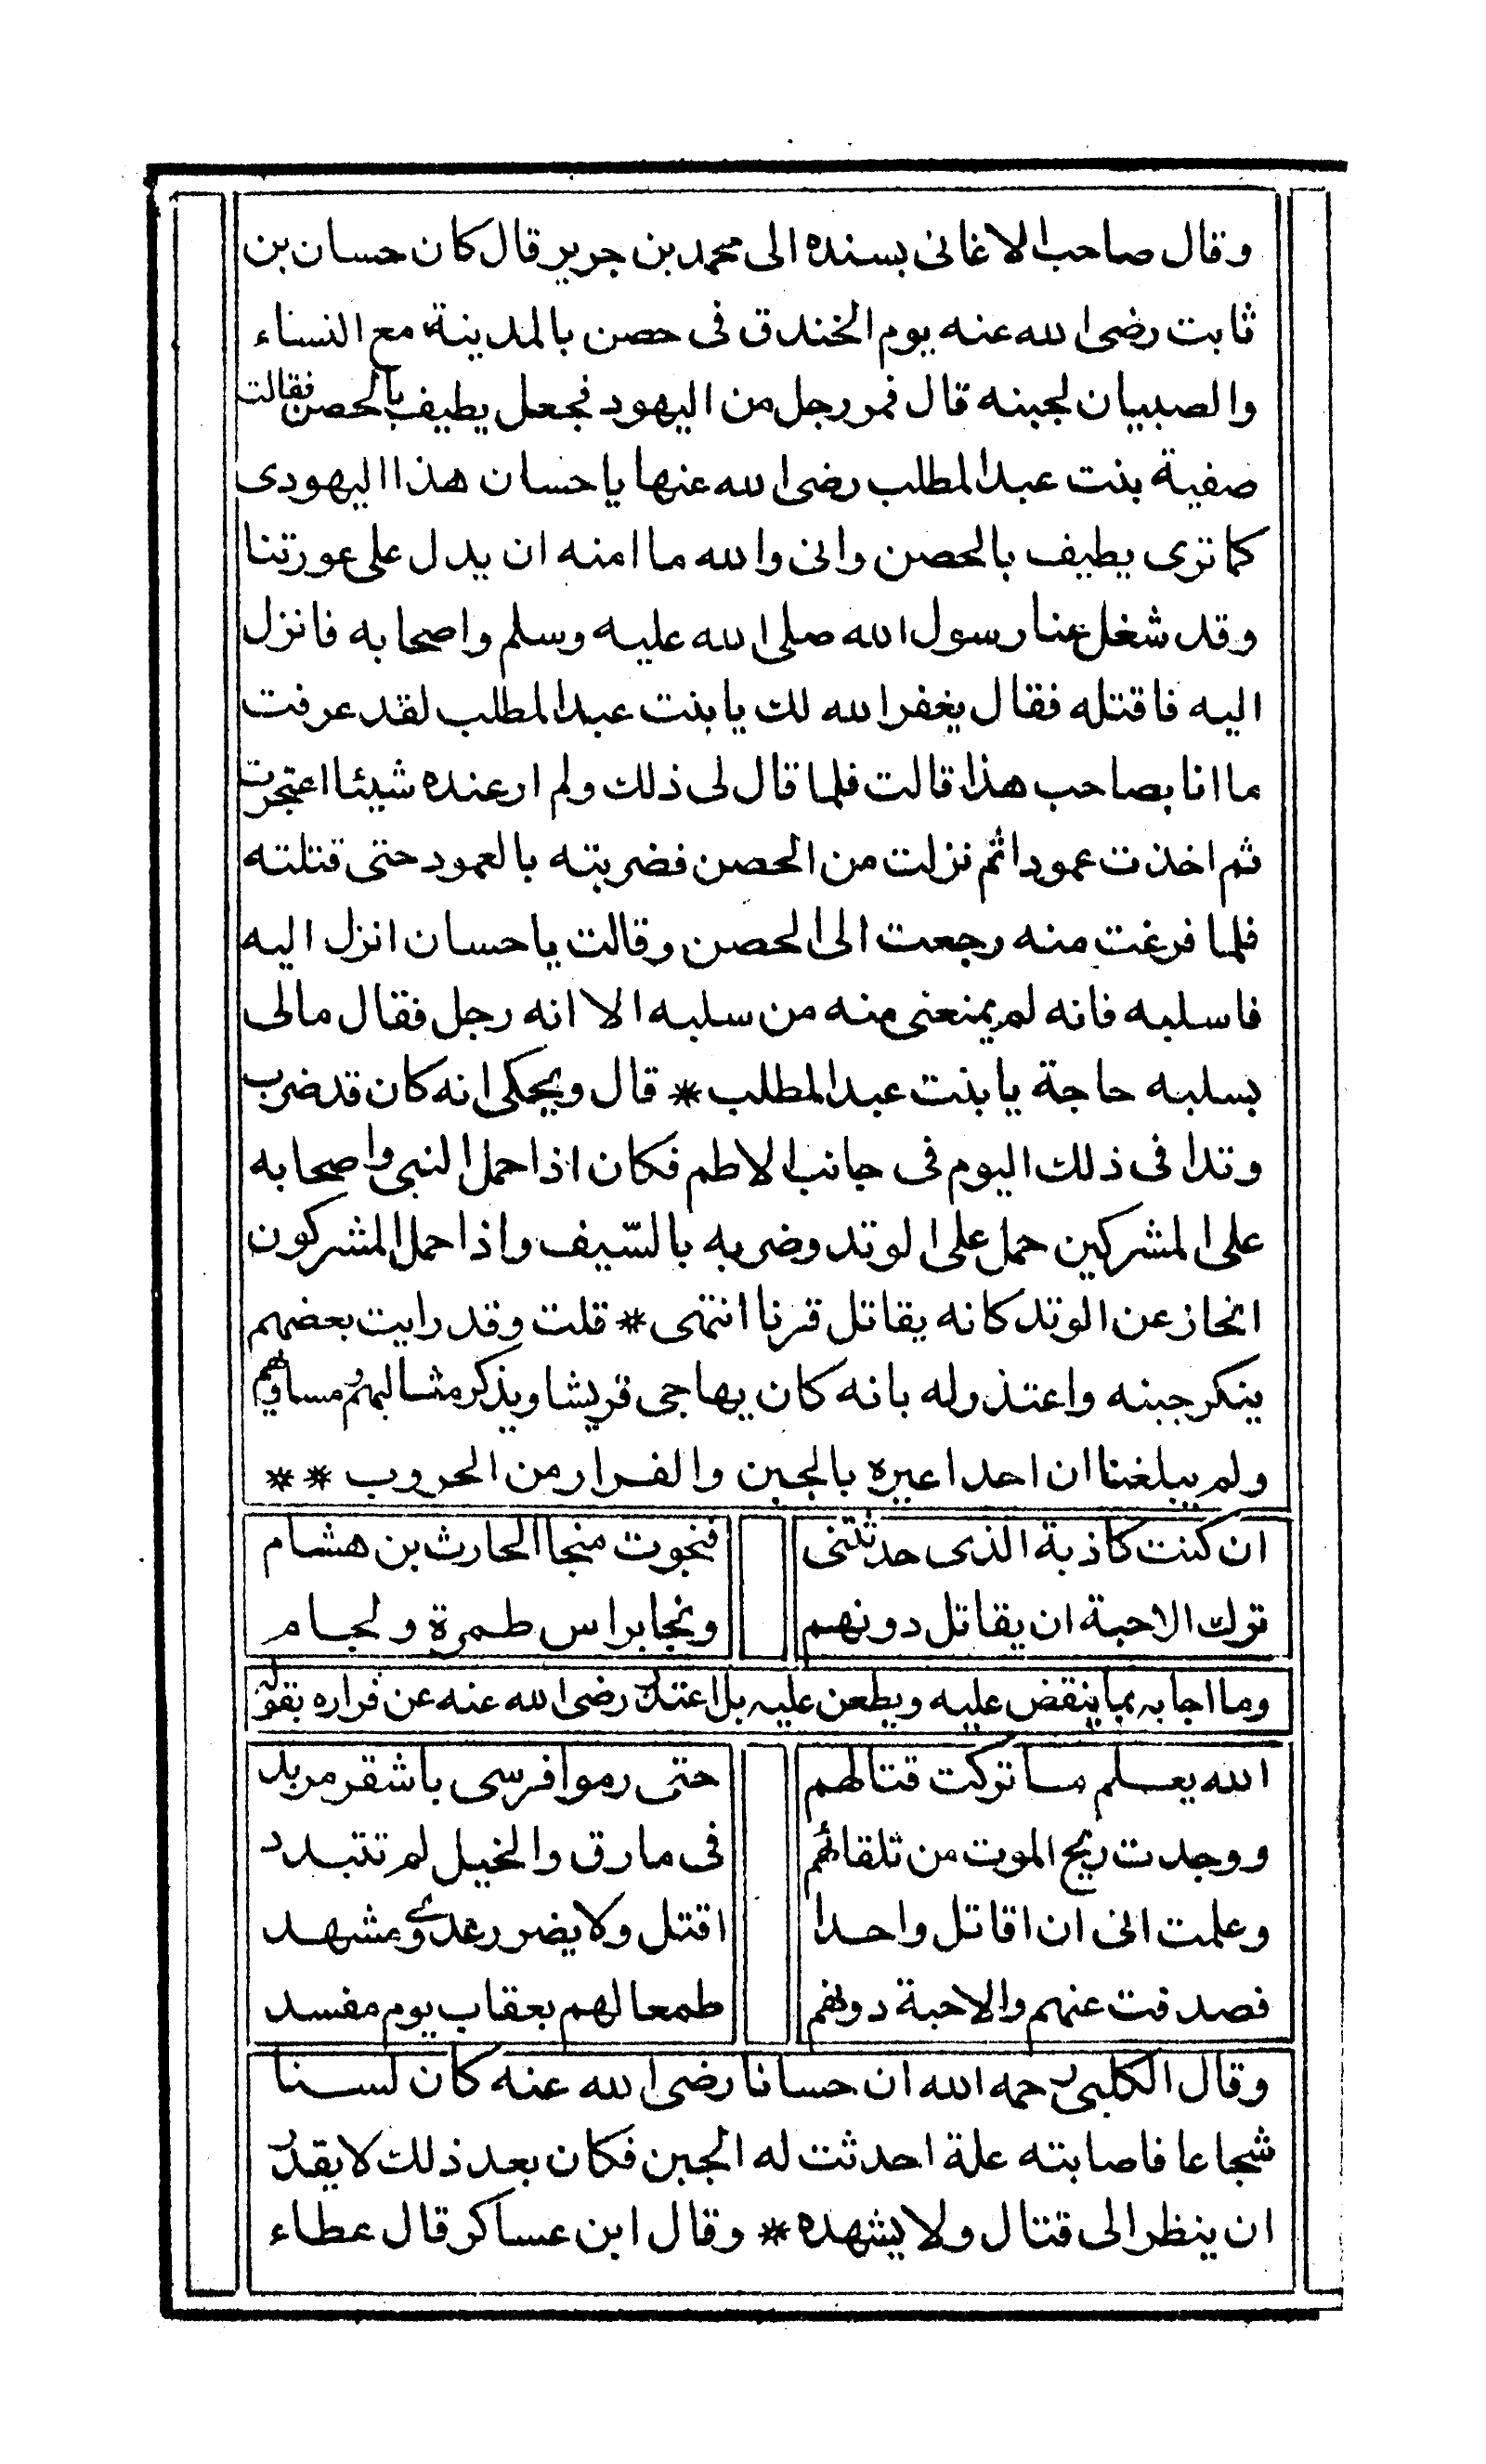 وقال صاحب الاغانى بسنده الى محمد بن جرير قال كان حسان بن
ثابت رضى الله عنه يوم الخندق فى حصن بالمدينة مع النساء
والصبيان لجبنه قال فمر رجل من اليهود فجعل يطيف بالحصن فقالت
صفية بنت عبد المطلب رضى الله عنها يا حسان هذا اليهودى
كما ترى يطيف بالحصن وانى والله ما امنه ان يدل على عورتنا
وقد شغل عنا رسول الله صلى الله عليه وسلم واصحابه فانزل
اليه فاقتله فقال يغفر الله لك يا بنت عبد المطلب لقد عرفت
ما انا بصاحب هذا قالت فلما قال لى ذلك ولم ار عنده شيئا اعتجرت
ثم اخذت عمودا ثم نزلت من الحصن فضربته بالعمود حتى قتلته
فلما فرغت منه رجعت الى الحصن وقالت يا حسان انزل اليه
فاسلبه فانه لم يمنعنى منه من سلبه الا انه رجل فقال مالى
بسلبه حاجة يا بنت عبد المطلب * قال ويحكى انه كان قد ضرب
وتدا فى ذلك اليوم فى جانب الاطم فكان اذا حمل النبى واصحابه
على المشركين حمل على الوتد وضربه بالسّيف واذا حمل المشركون
انحاز عن الوتد كانه يقاتل قرنا انتهى * قلت وقد رايت بعضهم
ينكر جبنه واعتذر له بانه كان يهاجى قريشا ويذكر مثالبهم ومساويهم
ولم يبلغنا ان احدا عيره بالجبن والفرار من الحروب **
ان كنت كاذبة الذى حدثتنى فنجوت منجا الحارث بن هشام
ترك الاحبة ان يقاتل دونهم ونجا براس طمرة ولجام
وما اجابه بما ينقض عليه ويطعن عليه بل اعتذر رضى الله عنه عن فراره بقوله
الله يعلم ما تركت قتالهم حتى رموا فرسى باشقر مربد
ووجدت ريح الموت من تلقائهم فى مارق والخيل لم تتبدد
وعلمت انى ان اقاتل واحدا اقتل ولا يضرر عدى ومشهد
فصدفت عنهم والاحبة دونهم طمعا لهم بعقاب يوم مفسد
وقال الكلبى رحمه الله ان حسانا رضى الله عنه كان لسنا
شجاعا فاصابته علة احدثت له الجبن فكان بعد ذلك لا يقدر
ان ينظر الى قتال ولا يشهده * وقال ابن عساكر قال عطاء